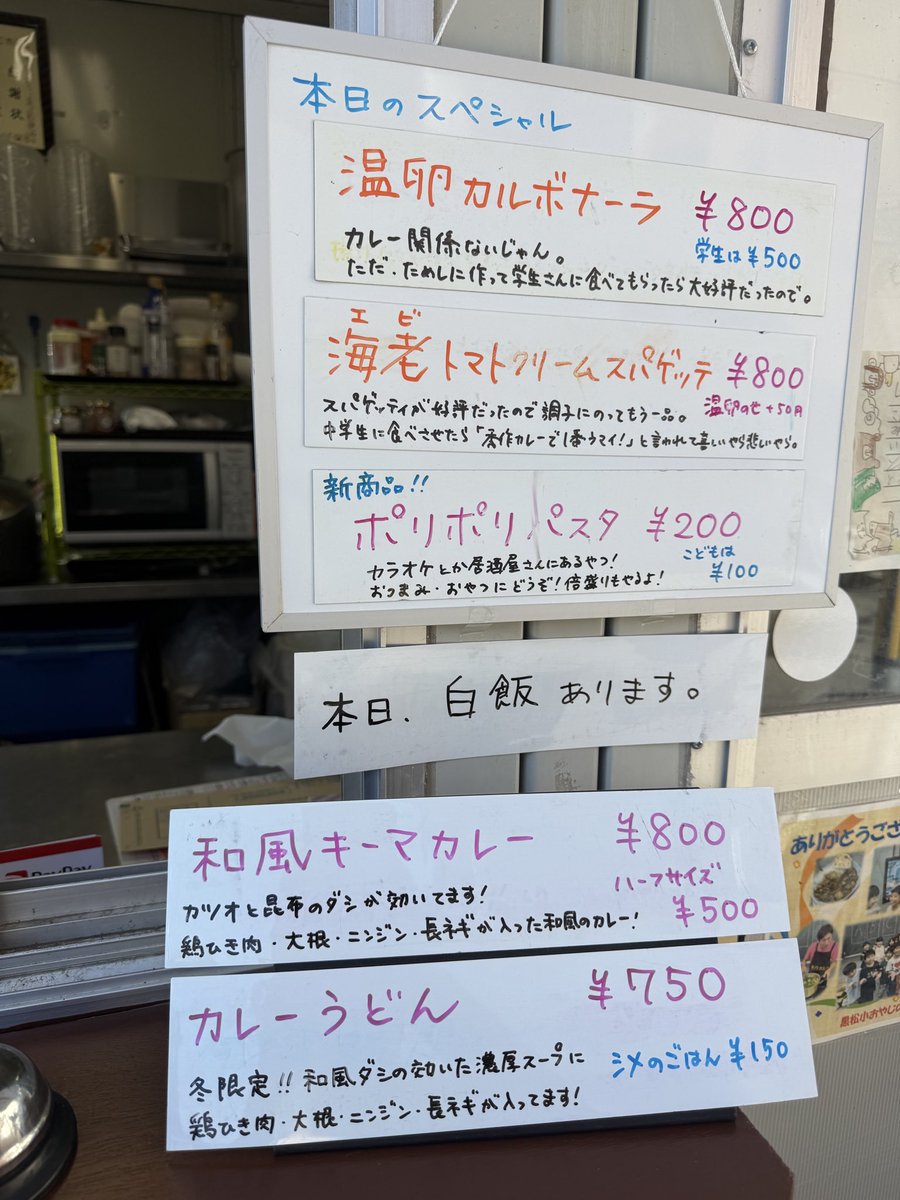 本日のスペシャル
温卵カルボナーラ ¥800
学生は¥500
カレー関係ないじゃん。
ただ・ためしに作って学生さんに食べてもらったら大好評だったので。
エビ
海老トマトクリームスパゲッテ ¥800
温卵のせ+50円
スパゲッティが好評だったので調子にのってもう一品。
中学生に食べさせたら「 作カレーで1番うマイ!」と言われて喜しいやら悲しいやら。
新商品!!
ポリポリパスタ ¥200
こどもは
¥100
カラオケとか居酒屋さんにあるやつ!
おつまみ・おやつにどうぞ!倍盛りもやるよ!
本日、白飯あります。
和風キーマカレー ¥800
ハーフサイズ
¥500
カツオと昆布のダシが効いてます!
鶏ひき肉・大根・ニンジン・長ネギが入った和風のカレー!
カレーうどん ¥750
シメのごはん ¥150
冬限定!!和風ダシの効いた濃厚スープに
鶏ひき肉・大根・ニンジン・長ネギが入ってます!
PayPay
ありがとうござ
黒松小おやじの